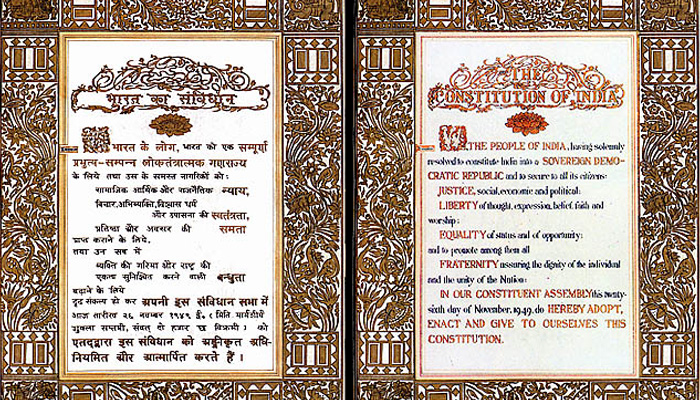 भारत का संविधान
भारत के लोग, भारत को एक सम्पूर्ण
प्रभुत्व-सम्पन्न लोकतंत्रात्मक गणराज्य
के लिये तथा उस के समस्त नागरिकों को:
सामाजिक आर्थिक और राजनैतिक न्याय,
विचार,अभिव्यक्ति,विश्वास धर्म
और उपासना की स्वतंत्रता,
प्रतिष्ठा और अवसर की समता
प्राप्त कराने के लिये,
तथा उन सब में
व्यक्ति की गरिमा और राष्ट्र की
एकता सुनिश्चित करने वाली बन्धुता
बढ़ाने के लिये
दृढ़ संकल्प हो कर अपनी इस संविधान सभा में
आज तारीख २६ नवम्बर १९४९ ई. (मिति मार्गशीर्ष
शुक्ला सप्तमी, संवत् दो हजार छ विक्रमी) को
एतद्द्वारा इस संविधान को अङ्गीकृत अधि-
नियमित और आत्मार्पित करते हैं।
THE
CONSTITUTION OF INDIA
THE PEOPLE OF INDIA, having solemnly
resolved to constitute India into a SOVEREIGN DEMO-
CRATIC REPUBLIC and to secure to all its citizens:
JUSTICE, social, economic and political;
LIBERTY of thought, expression, belief, faith and
worship;
EQUALITY of status and of opportunity;
and to promote among them all
FRATERNITY assuring the dignity of the individual
and the unity of the Nation;
IN OUR CONSTITUENT ASSEMBLY this twenty-
sixth day of November, 1949, do HEREBY ADOPT,
ENACT AND GIVE TO OURSELVES THIS
CONSTITUTION.